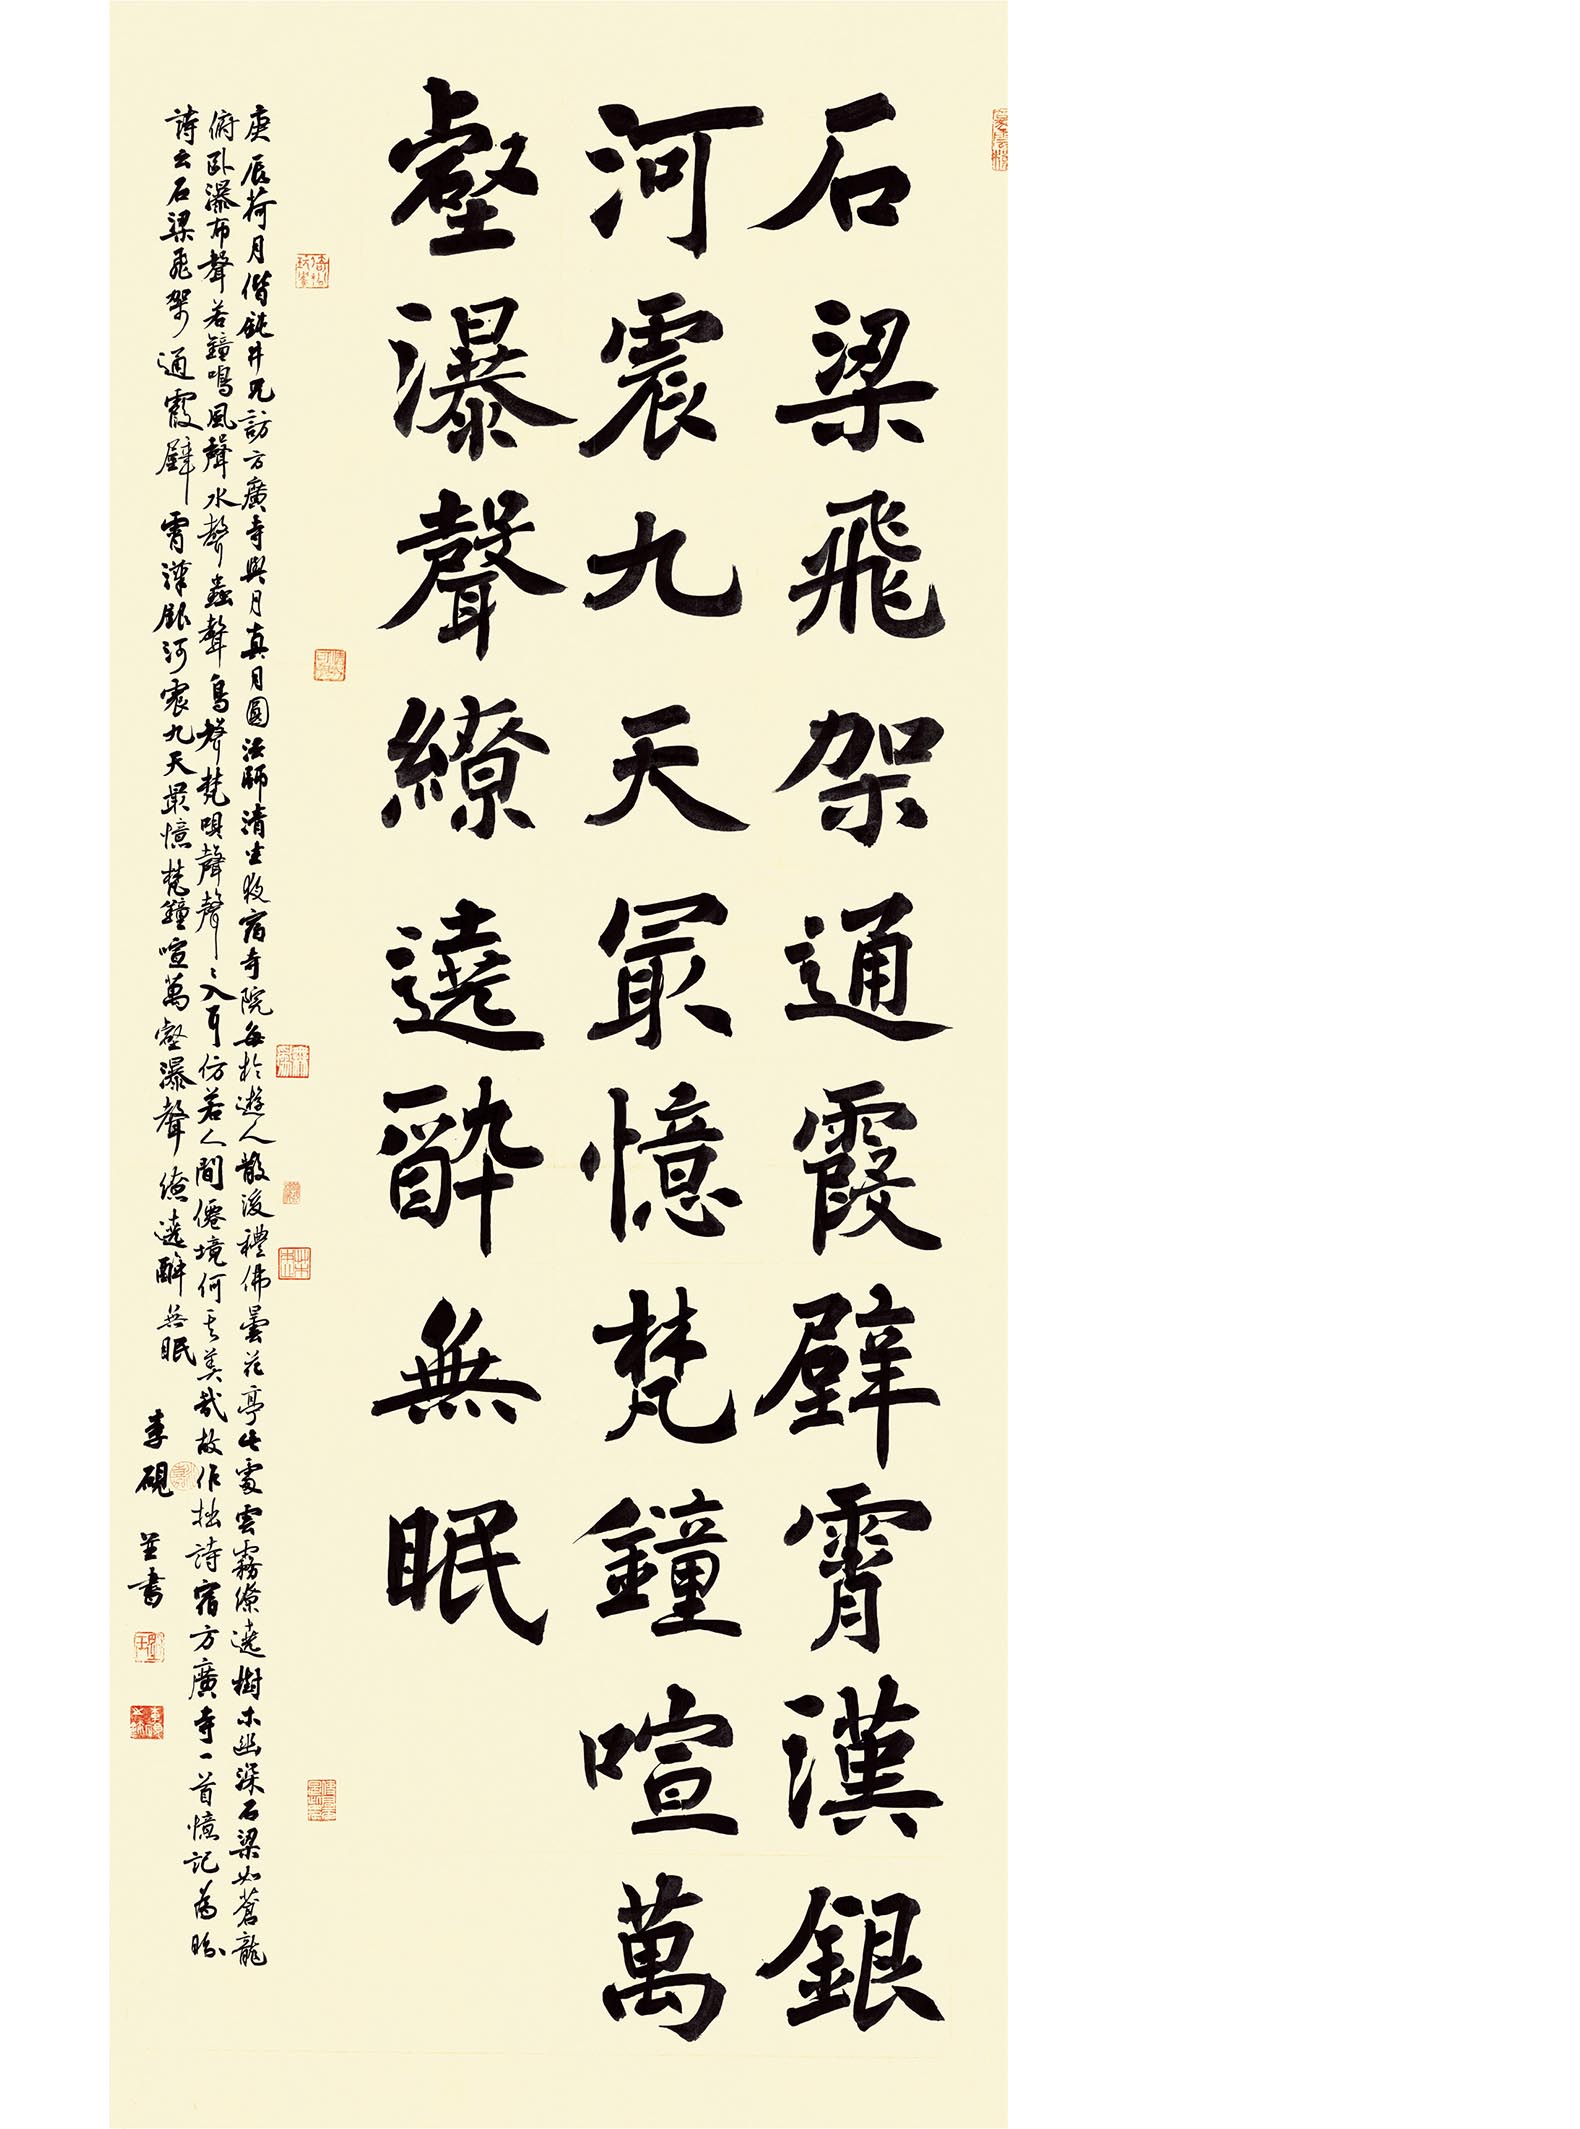 石梁飛架通霞壁霄漢銀
河震九天最憶梵鐘喧萬
壑瀑聲繚遶醉無眠
庚辰荷月偕鈍井兄訪方廣寺與月真月圓法師清坐夜宿寺院每於遊人散後禮佛曇花亭此處雲霧繚遶樹木幽深石梁如蒼龍
俯臥瀑布聲若鐘鳴風聲水聲蟲聲鳥聲梵唄聲聲〻入耳仿若人間僊境何其美哉故作拙詩宿方廣寺一首憶記為盼
詩云石梁飛架通霞壁霄漢銀河震九天最憶梵鐘喧萬壑瀑聲繚遶醉無眠
李硯並書